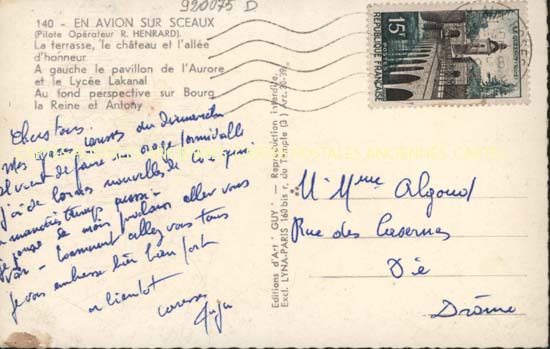 920075 D
140 - EN AVION SUR SCEAUX
(Pilote Opérateur R. HENRARD).
La terrasse, le château et l'allée
d'honneur
A gauche le pavillon de l'Aurore
et le Lycée Lakanal
Au fond perspective sur Bourg
la Reine et Antony
Chers tous.
Mes caresses du dimanche
Il vient de faire un orage formidable
J'ai de bonnes nouvelles de
temps aussi -
je pense le mois prochain aller vous
voir - Comment allez vous tous
Je vous embrasse bien fort
à bientôt
caresses
Editions d'Art "GUY" - Reproduction interdite.
Excl. LYNA-PARIS 160 bis r. du Temple (3) Arc. 30-90.
15F
REPUBLIQUE FRANÇAISE
M Mme Algoud
Rue des Casernes
Die
Drôme